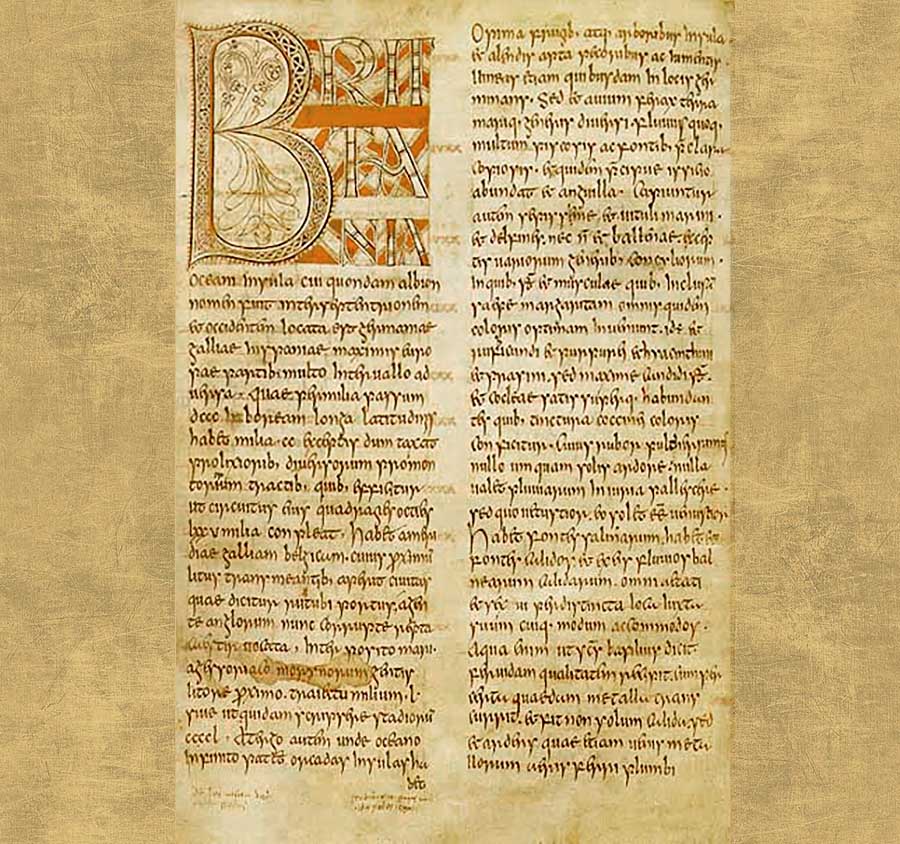 BRIT
TA
NIA
oceani insula cui quondam albion
nomen fuit inter septentrionem
et occidentem locata est germaniae
galliae hispaniae maximis euro
pae partibus multo interuallo ad
uersa. Quae per milia passuum
dccc in boream longa latitudinis
habet milia .cc. exceptis dum taxat
prolixioribus diuersorum promon
toriorum tractibus quibus efficitur
ut circuitus eius quadragies octies
lxxu milia conpleat. habet a meri
die galliam belgicam. cuius proximum
litus transmeantibus aperit ciuitas
quae dicitur rutubi portus a gen
te anglorum nunc corrupte repta
caestir uocata, interposito mari.
a gessoriaco morynorum gentis
litore proximo. traiectu milium .l.
siue ut quidam scripsere stadiorum
ccccl. A tergo autem unde oceano
infinito patet orcadas insulas ha
bet
Opima frugibus atque arboribus insula
et alendis apta pecoribus ac iumentis
uineas etiam quibusdam in locis ger
minans. Sed et auium ferax terra
marique generis diuersi fluuiis quoque
multum piscosis ac fontibus praeclara
copiosis. et quidem praecipue issicio
abundat et anguilla. Capiuntur
autem saepissime et uituli marini.
et delfines nec non et ballenae excep
tis uariorum generibus concyliorum.
in quibus sunt et musculae quibus inclusam
saepe margaritam omnis quidem
coloris optimam inueniunt. id est et
rubicundi et purpurei et hyacinthini
et prasini. sed maxime candidi sunt.
et cocleae satis superque habundan
tes quibus tinctura coccinei coloris
conficitur. Cuius rubor pulcherrimus
nullo umquam solis ardore. nulla
ualet pluuiarum iniuria pallescere.
sed quo uetustior. eo solet esse uenustior
habet fontes salinarum. habet et
fontes calidos. et ex eis fluuios bal
nearum calidarum. omni aetati
et sexui per distincta loca iuxta
suum cuique modum accommodos.
Aqua enim ut sanctus basilius dicit
feruidam qualitatem recipit. cum per
certa quaedam metalla trans
currit. et fit non solum calida sed
et ardens quae etiam uenis meta
llorum aeris ferri plumbi